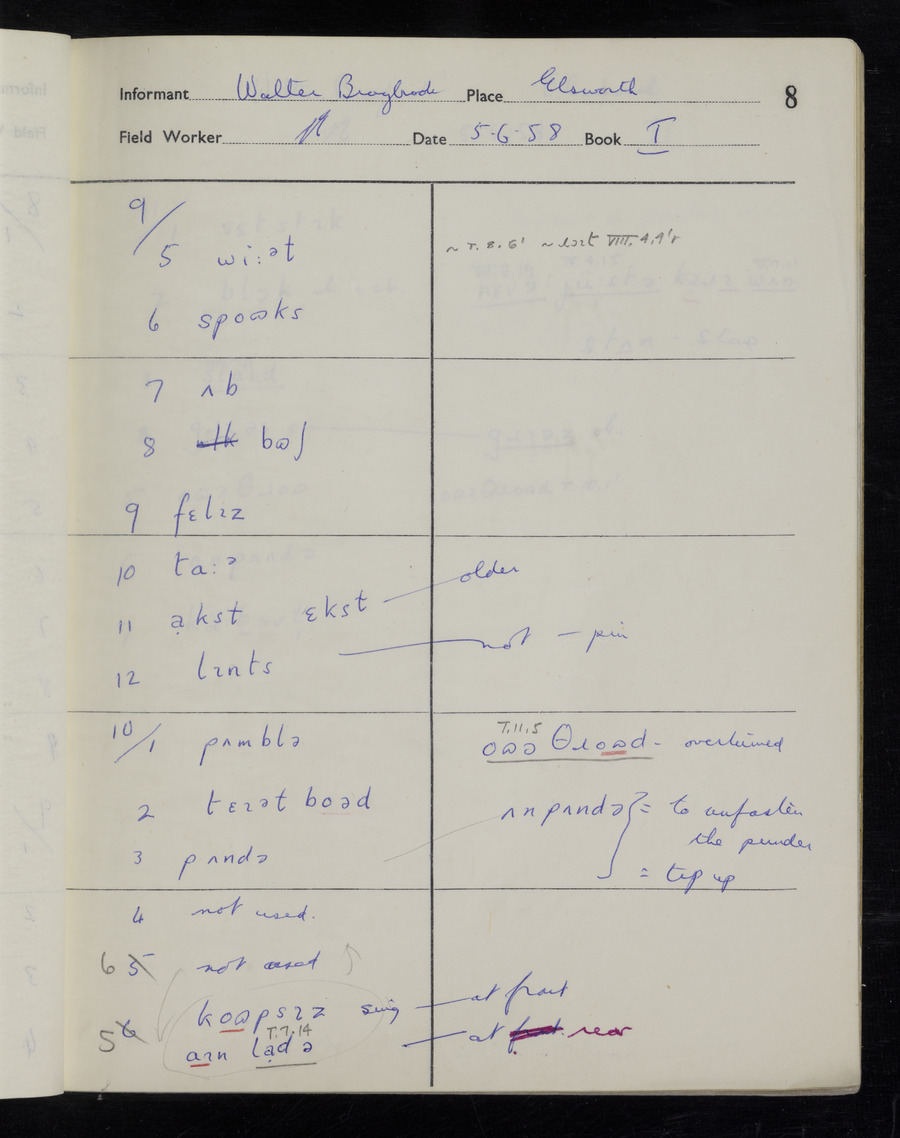 Informant Walter Braybrook Place Elsworth 8
Field Worker Date 5-6-58 Book I
9/
5 wiːət
6 spoɷks
7 ʌb
8 bɷʃ
9 fɛlɪz
10 taːə
11 a̤kst ɛkst older
12 lɪnts not – pin
10/1 pʌmblə T.11.5
oɷə θɹoɷd - overturned
2 tɛɪət boəd
3 pʌndə ʌnpʌndə } = to unfasten
the punder
= tip up
4 not used.
6 5 not used
5 6 koɷpsɪz sing at front
T.7.14
aɪn ladə at rear